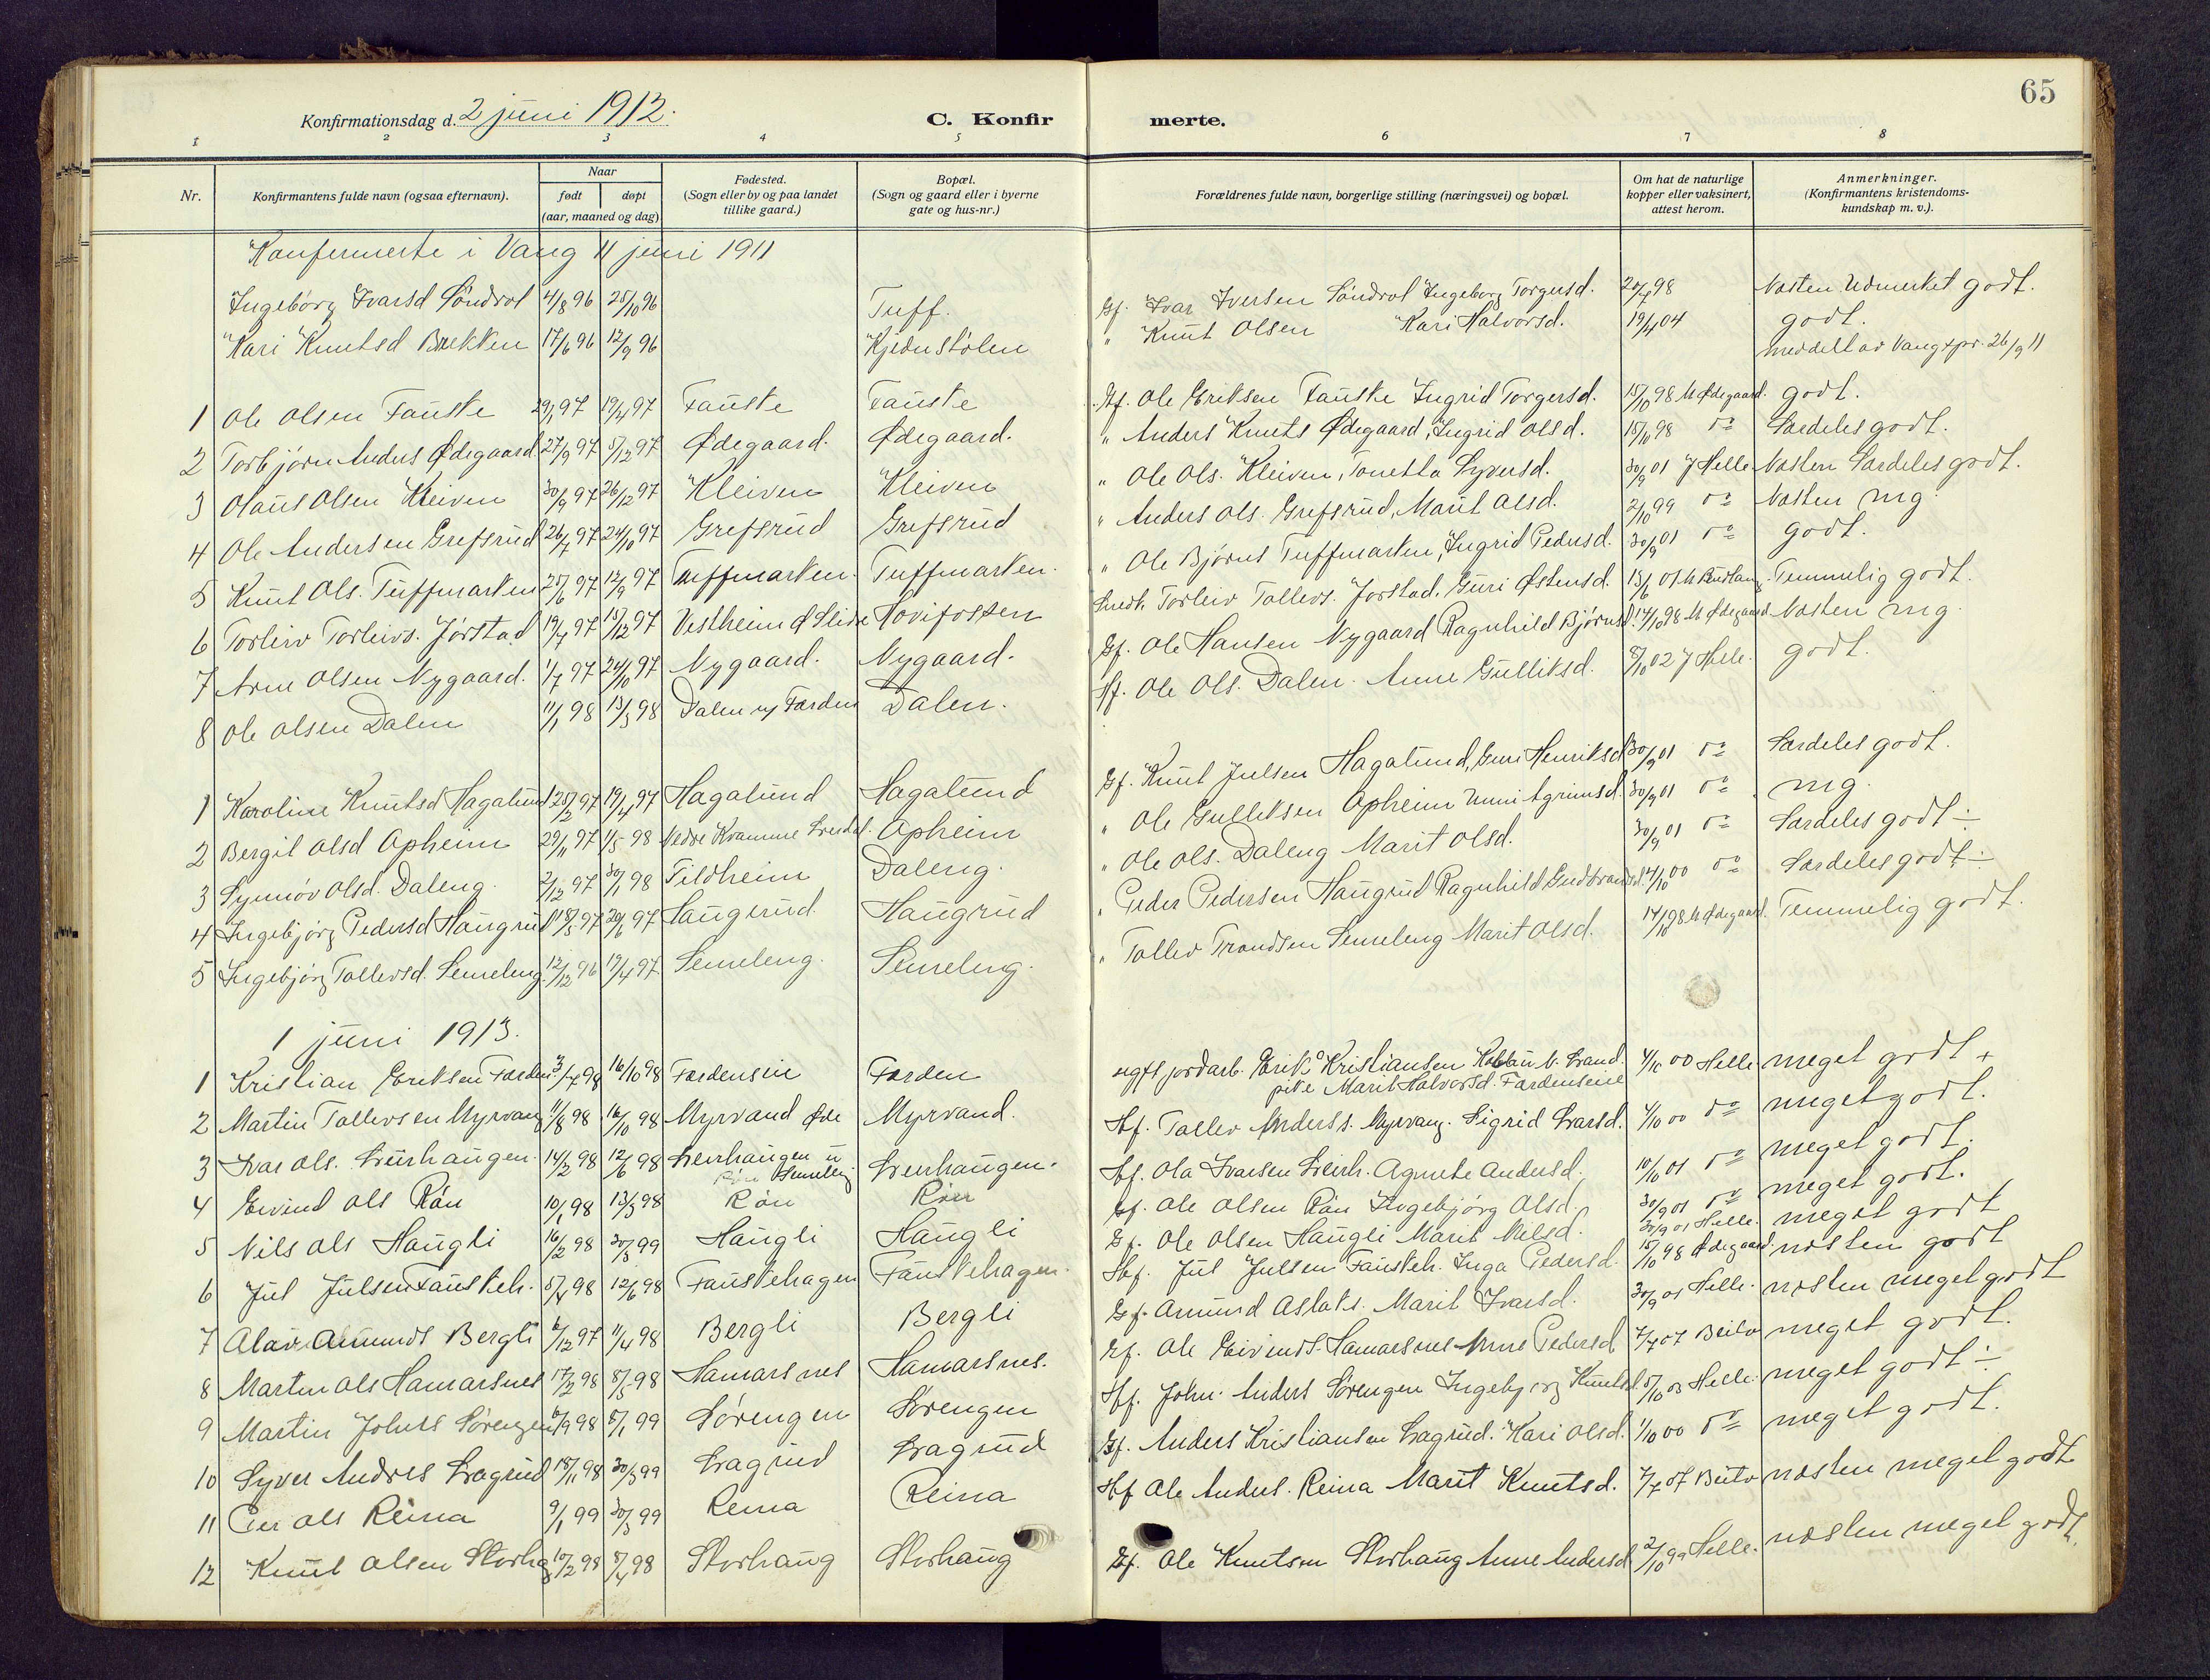 65
Konfirmationsdag d. 2 juni 1912.
C. Konfir merte.
1 2 3 4 5 6 7 8
Nr. Konfirmantens fulde navn (ogsaa efternavn). Naar født døpt (aar, maaned og dag) Fødested. (Sogn eller by og paa landet tillike gaard.) Bopæl. (Sogn og gaard eller i byerne gate og hus-nr.) Forældrenes fulde navn, borgerlige stilling (næringsvei) og bopæl. Om hat de naturlige kopper eller vaksinert, attest herom. Anmerkninger. (Konfirmantens kristendoms-kundskap m. v.).
Konfermerte i Vang 11 juni 1911
Ingebörg Ivarsd Söndrol 4/8 96 25/10 96 Tuff. Gf. Ivar Iversen Söndrol Ingeborg Torgersd. 20/4 98 Næsten Udmerket godt.
Kari Knutsd Brekken 17/6 96 12/9 96 Kjedustölen " Knut Olsen Kari Halvorsd. 19/4 04 godt.
meddelt av Vang spr. 26/9 11
1 Ole Olsen Fauske 29/1 97 19/4 97 Fauske Fauske Gf. Ole Eriksen Fauske Ingrid Torgersd. 15/10 98 M Ødegaard. godt.
2 Torbjörn Anders Ødegaard 27/9 97 5/12 97 Ødegaard. Ødegaard. " Anders Knuts Ødegaard, Ingrid Olsd. 15/10 98 do Særdeles godt.
3 Olaus Olsen Kleiven 30/9 97 26/12 97 Kleiven Kleiven " Ole Ols. Kleiven, Tonetta Syversd. 30/9 01 J Helle Næsten Særdeles godt.
4 Ole Andersen Grefsrud 26/7 97 24/10 97 Grefsrud Grefsrud " Anders Ols. Grefsrud, Marit Olsd. 2/10 99 do Næsten mg.
5 Knut Ols. Tuffmarken 25/6 97 12/9 97 Tuffmarken. Tuffmarken. " Ole Björns Tuffmarken, Ingrid Pedersd. 30/9 01 do godt.
6 Torleiv Torleivs. Jörstad 19/7 97 15/12 97 Vestheim Ø Slidre Hovifossen Smedb. Torleiv Tollevs. Jorstad. Guri Østensd. 15/6 01 Temmelig godt.
7 Arne Olsen Nygaard. 1/7 97 24/10 97 Nygaard. Nygaard. Gf. Ole Hansen Nygaard Ragnhild Björnsd. 14/10 98 M Ødegaard Næsten mg.
8 Ole Olsen Dalen 11/1 98 13/3 98 Dalen u/ Færden Dalen. Hf. Ole Ols. Dalen. Anne Gulliksd. 8/10 02 J Helle. godt.
1 Karoline Knutsd Hagalund 25/2 97 19/4 97 Hagalund Hagalund Gf. Knut Julsen Hagalund, Guri Henriksd 30/9 01 do Særdeles godt.
2 Bergit Olsd Opheim 29/11 97 1/5 98 Nedre Kvamme Lærdal. Opheim " Ole Gulleksen Opheim Unni Agrimsd. 30/9 01 do mg.
3 Synnöv Olsd. Daleng. 2/12 97 30/1 98 Tildheim Daleng. " Ole Ols. Daleng Marit Olsd. 30/9 01 do Særdeles godt ÷
4 Ingebjörg Pedersd Haugrud 18/5 97 29/6 97 Haugerud. Haugrud " Peder Pedersen Haugrud Ragnhild Gudbrandsd. 14/10 00 do Særdeles godt ÷
5 Ingebjörg Tollevsd. Semeleng. 12/12 96 19/4 97 Semeleng. Semeleng. " Tollev Trondsen Semeleng Marit Olsd. 14/10 98 M Ødegaard. Temmelig godt.
1 juni 1913.
1 Kristian Eriksen Færden 3/7 98 16/10 98 Færdenseie Færden ugift jordarb. Erik Kristiansen
pike Marit Halvorsd. Færdenseie 4/10 00 Helle meget godt +
2 Martin Tollevsen Myrvang 11/8 98 16/10 98 Myrvand Øde Myrvand. Hf. Tollev Anderss. Myrvang. Sigrid Ivarsd. 4/10 00 do meget godt.
3 Ivar Ols. Leirhaugen. 14/2 98 12/6 98 Leirhaugen u Semeleng Leirhaugen. Hf. Ola Ivarsen Leirh. Agnete Andersd. 10/10 01 do meget godt.
4 Eivind Ols Rön 10/1 98 13/3 98 Rön Rön Gf. Ole Olsen Rön Ingebjørg Olsd. 30/9 01 do meget godt.
5 Nils Ols Haugli 16/2 98 30/3 99 Haugli Haugli Gf. Ole Olsen Haugli Marit Nilsd. 30/9 01 Helle. meget godt
6 Jul Julsen Fauskeh. 5/4 98 12/6 98 Fauskehagen Fauskehagen. Hf. Jul Julsen Fauskeh. Inga Pedersd. 15/10 98 Ødegaard. næsten godt
7 Olav Amunds Bergli 6/12 97 11/4 98 Bergli Bergli Gf. Amund Aslaks. Marit Ivarsd. 30/9 01 Helle. næsten meget godt
8 Martin Ols Hamarsnes 17/2 98 8/5 98 Hamarsnes Hamarsnes. Gf. Ole Eivinds. Hamarsnes Anne Pedersd 7/7 07 Beito meget godt.
9 Martin Johns Sörengen 6/9 98 8/1 99 Sörengen Sörengen Hf. John Anders Sörengen Ingebjörg Knutsd. 5/10 03 Helle. meget godt ÷
10 Syver Andres Lagrud 18/11 98 30/3 99 Lagrud Lagrud Gf. Anders Kristiansen Lagrud. Kari Olsd. 1/10 00 do meget godt.
11 Per Ols Reina 9/1 99 30/3 99 Reina Reina Hf Ole Anders. Reina Marit Knutsd. 7/7 07 Beito næsten meget godt
12 Knut Olsen Storhg 10/2 98 8/4 98 Storhaug Storhaug Gf. Ole Knutsen Storhaug Anne Andersd 2/10 99 Helle. næsten meget godt.